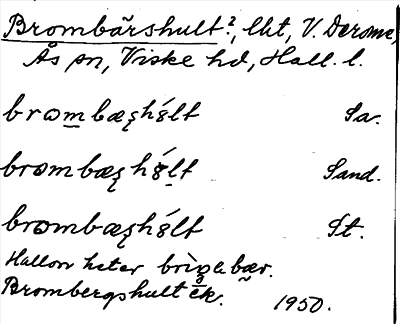 Brombärshult?, lht, V. Derome,
Ås sn, Viske hd, Hall. l.
brɷm bæȿhǿlt Sa.
brɷm bæȿ hǿlt Sand.
brɷmbæȿhǿlt St.
Hallon heter bær.
Brombergshult ek. 1950.